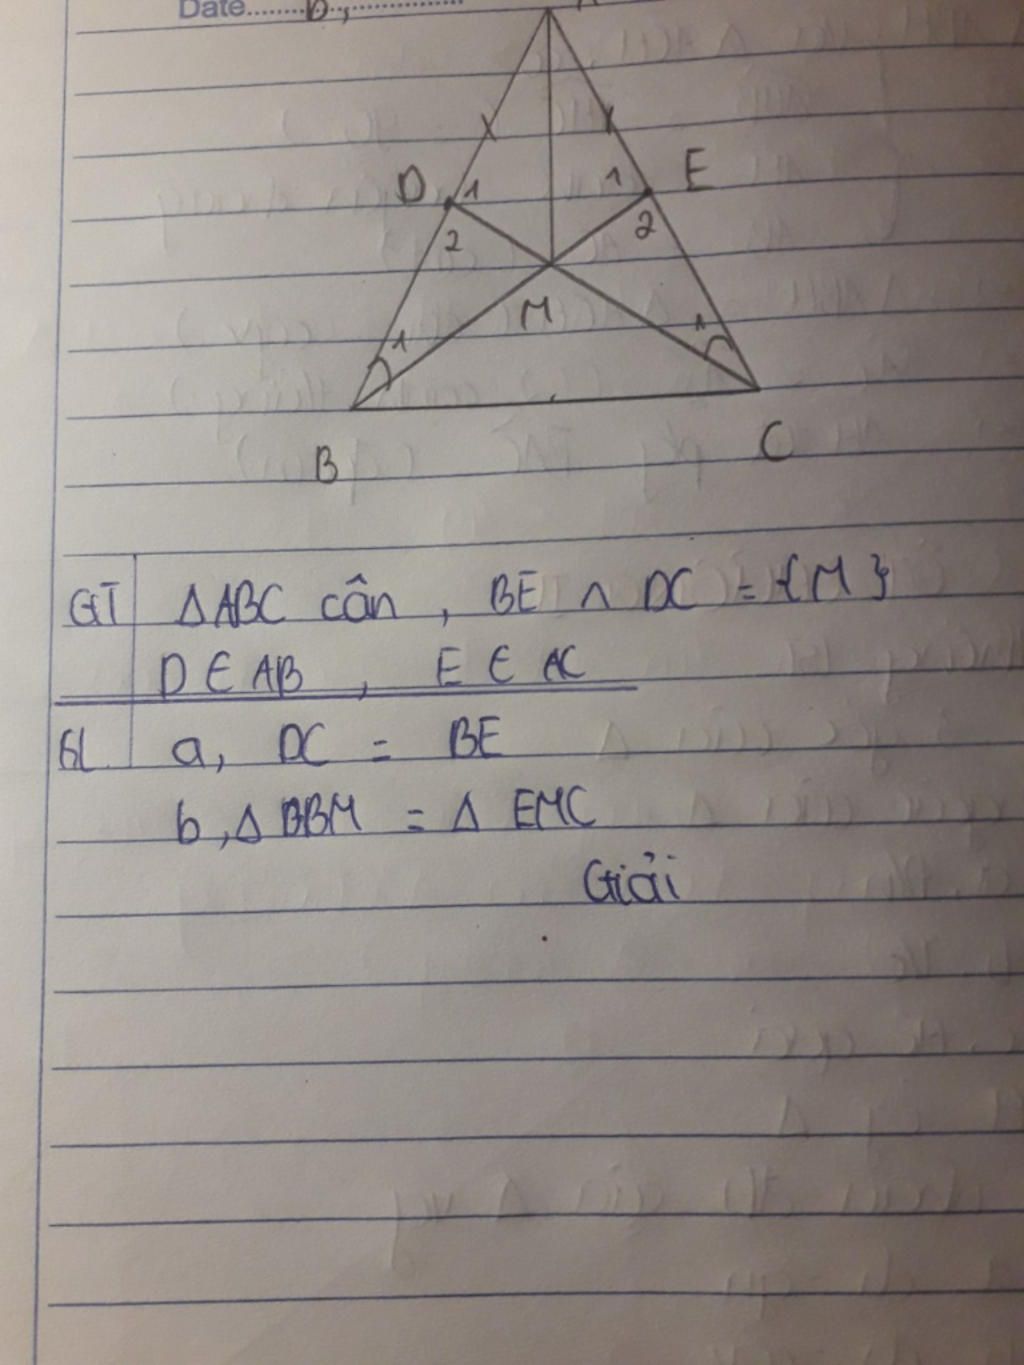 Date
D 1 1 E
2 2
M
1 1
B C
GT ΔABC cân, BE ∩ DC = {M}
D ∈ AB, E ∈ AC
KL a, DC = BE
b, Δ BBM = Δ EMC
Giải